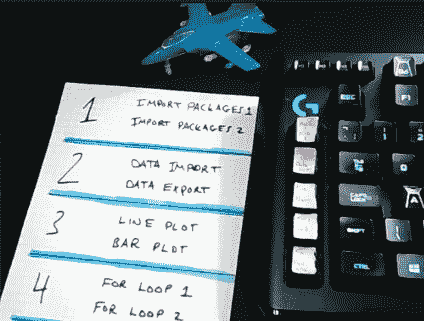 1 IMPORT PACKAGES 1
IMPORT PACKAGES 2
2 DATA IMPORT
DATA EXPORT
3 LINE PLOT
BAR PLOT
4 FOR LOOP 1
FOR LOOP 2
G
ESC
F1
1
2
TAB
Q
CAPS LOCK
A
SHIFT
CTRL